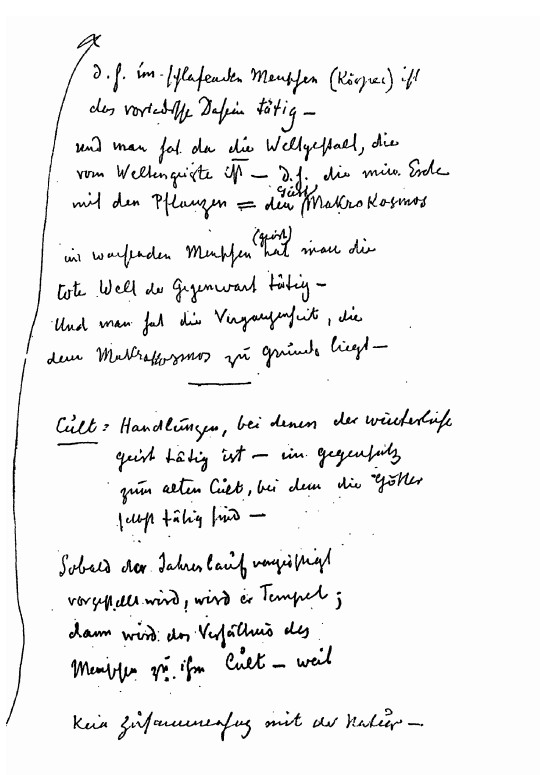 d. h. im schlafenden Menschen (Körper) ist
das vorirdische Dasein tätig —
und man hat da die Weltgestalt, die
vom Weltengeiste ist — d. h. die min. Erde
mit den Pflanzen = den Geist Makrokosmos
im wachenden Menschen (Geist) hat man die
tote Welt der Gegenwart tätig —
Und man hat die Vergangenheit, die
dem Makrokosmos zu Grunde liegt —
Cült: Handlungen, bei denen der winterliche
Geist tätig ist — im Gegensatz
zum alten Cült, bei dem die Götter
selbst tätig sind —
Sobald der Jahreslauf vergeistigt
vorgestellt wird, wird er Tempel;
dann wird das Verhältnis des
Menschen zu ihm Cült — weil
Kein Zusammenhang mit der Natur —